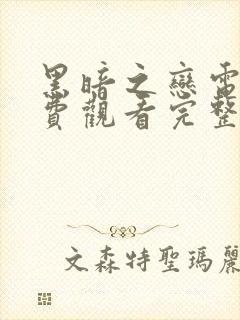 黑暗之戀電
費觀看完整
文森特聖瑪麗